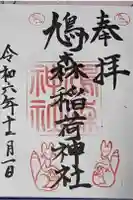 奉拝
鳩森稲荷神社
令和六年十一月一日